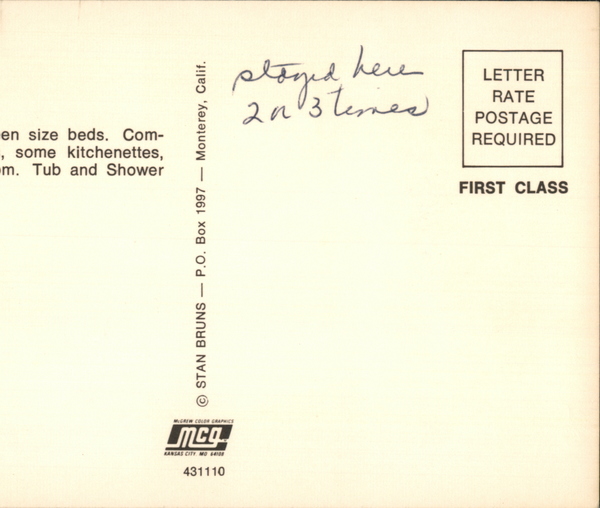 een size beds. Com-
, some kitchenettes,
m. Tub and Shower
© STAN BRUNS — P.O. Box 1997 — Monterey, Calif.
stayed here
2 or 3 times
LETTER
RATE
POSTAGE
REQUIRED
FIRST CLASS
McGREW COLOR GRAPHICS
mcg
KANSAS CITY, MO 64108
431110